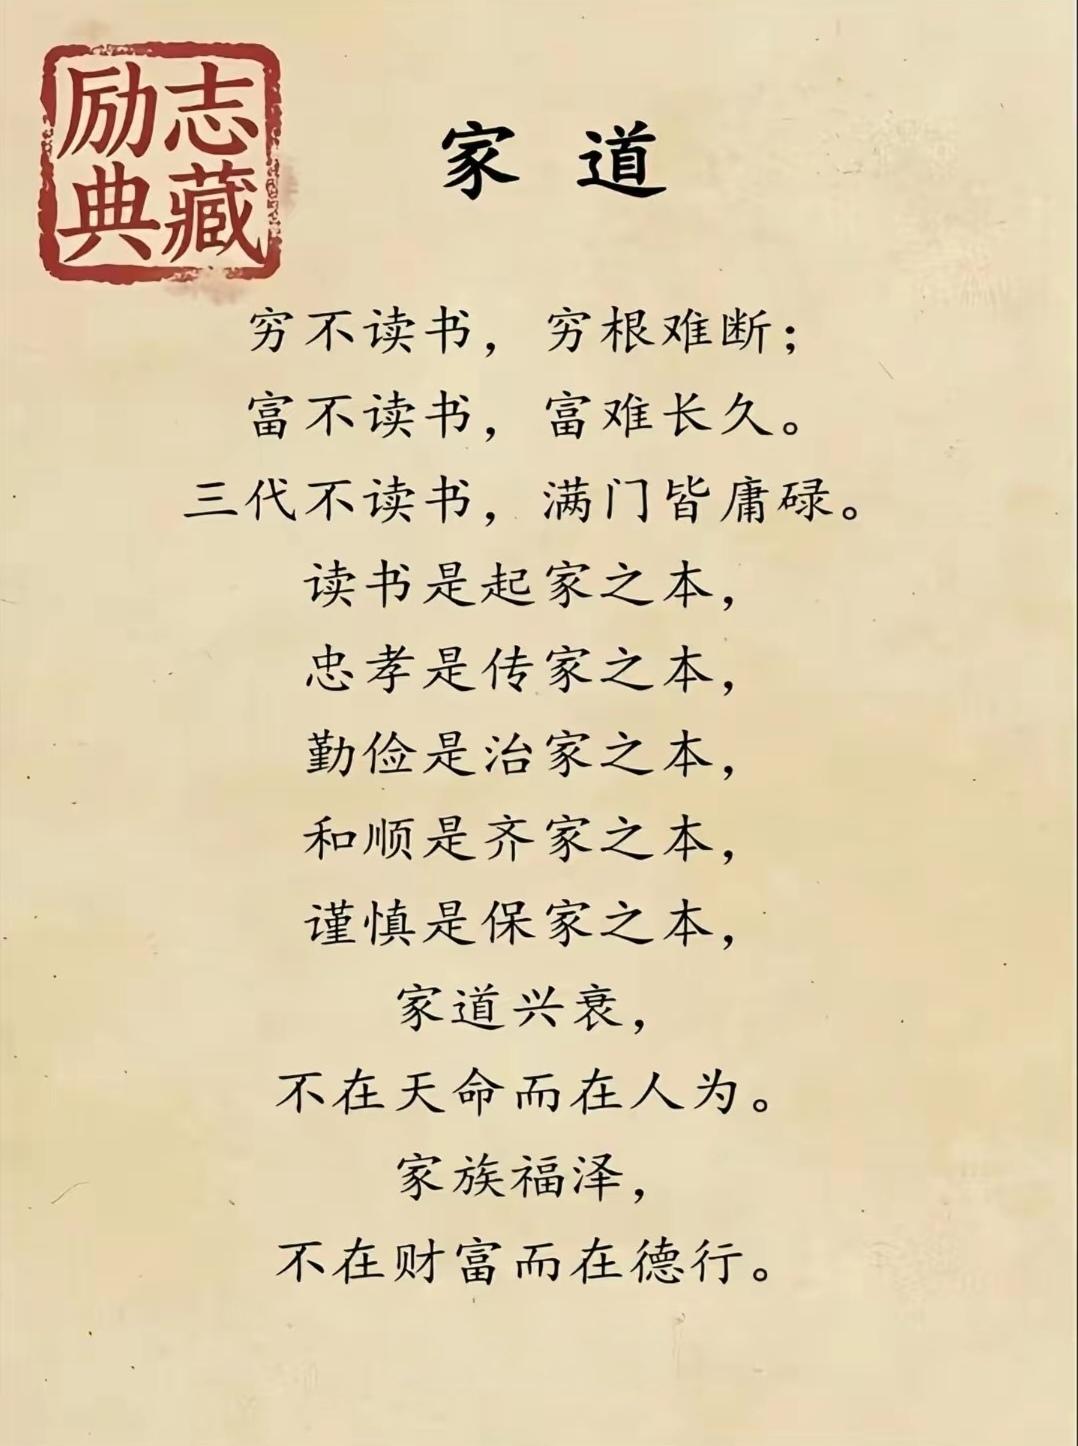 励志
典藏
家道
穷不读书，穷根难断；
富不读书，富难长久。
三代不读书，满门皆庸碌。
读书是起家之本，
忠孝是传家之本，
勤俭是治家之本，
和顺是齐家之本，
谨慎是保家之本，
家道兴衰，
不在天命而在人为。
家族福泽，
不在财富而在德行。